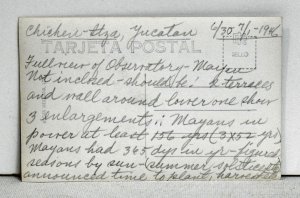 Chichen-Itza, Yucatan 6/30-7/1-1946
TARJETA POSTAL
Full view of Observatory - Mayan
Not inclosed - should be: 2 terraces
and wall around lower one show
3 enlargements,: Mayans in
power at least 156 yrs (3x52 yrs)
Mayans had 365 dys in yr - figured
seasons by sun - summer solstice etc
announced time to plant, harvest etc